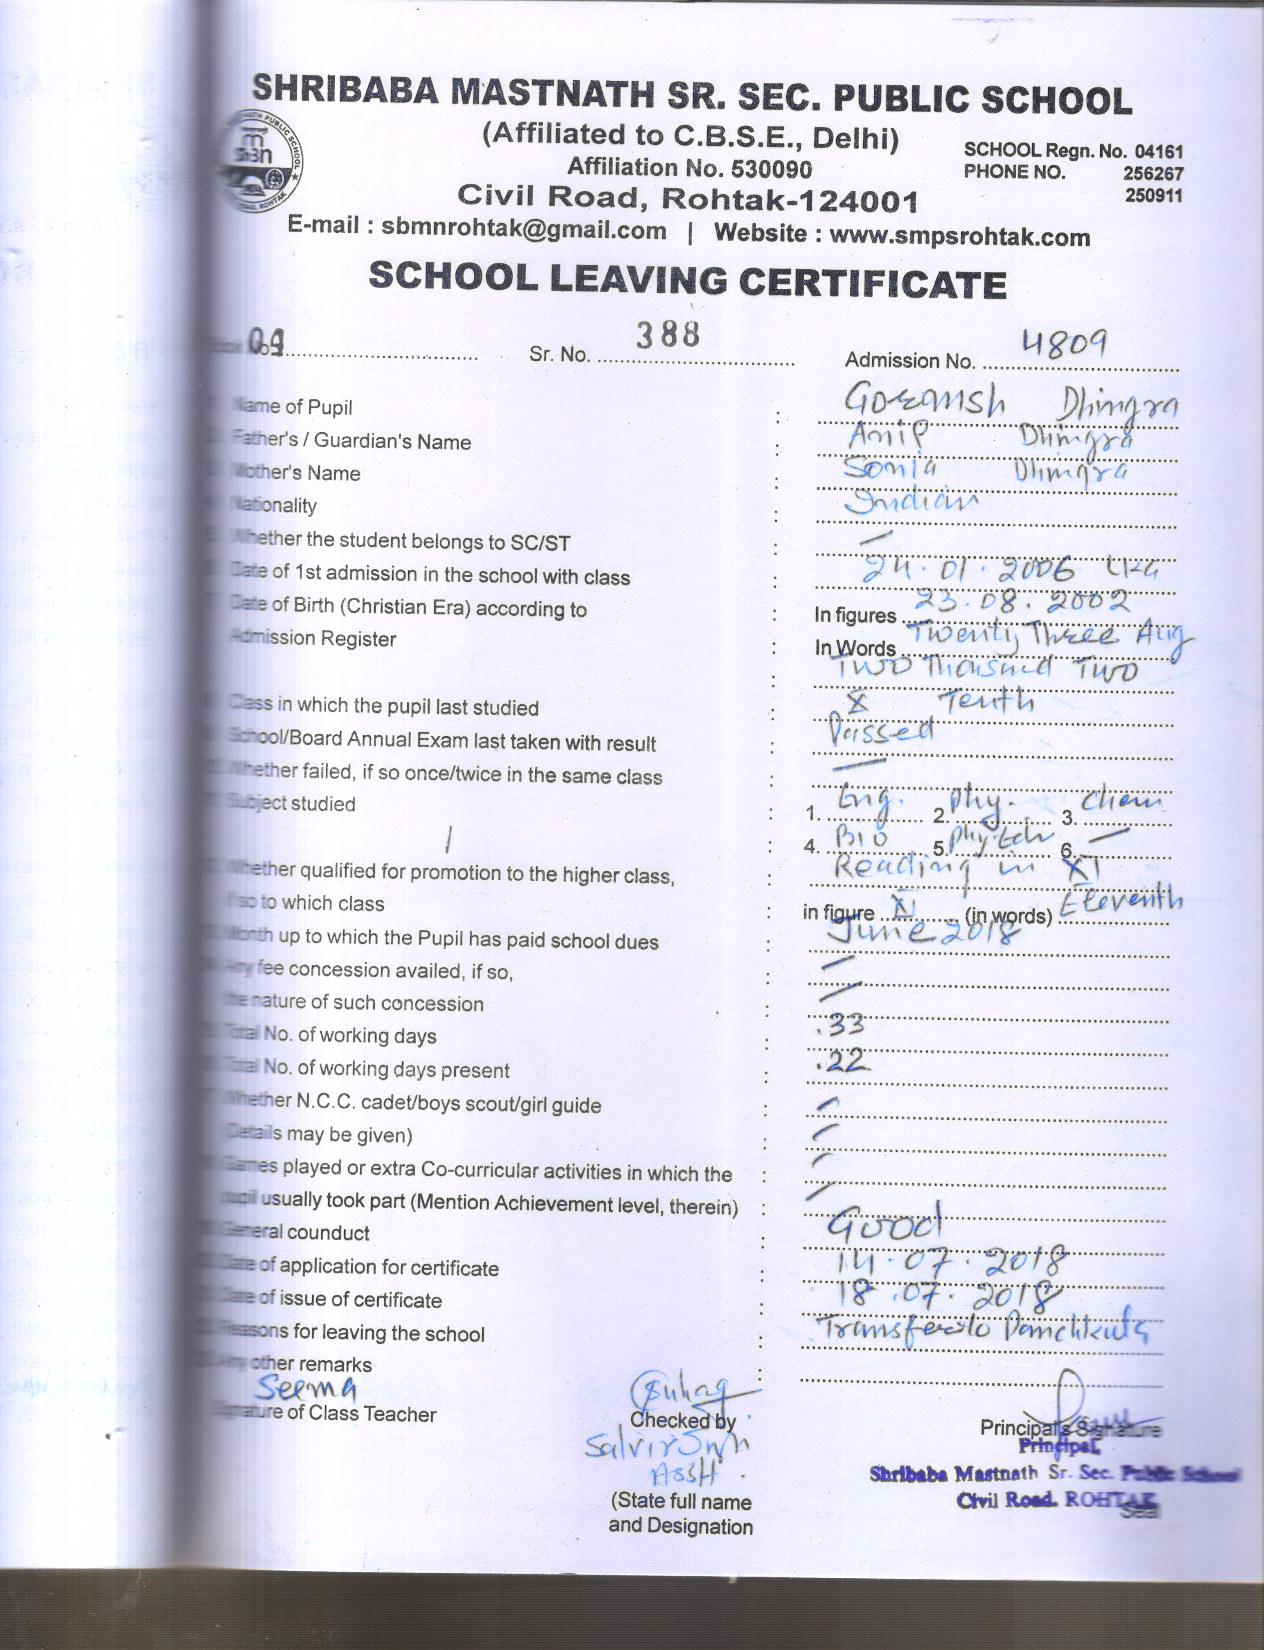 SHRIBABA MASTNATH SR. SEC. PUBLIC SCHOOL
(Affiliated to C.B.S.E., Delhi)
Affiliation No. 530090
SCHOOL Regn. No. 04161
PHONE NO. 256267
250911
Civil Road, Rohtak-124001
E-mail : sbmnrohtak@gmail.com | Website : www.smpsrohtak.com
SCHOOL LEAVING CERTIFICATE
Sr. No. 388 Admission No. 4809
Name of Pupil : Goransh Dhingra
Father's / Guardian's Name : Anil Dhingra
Mother's Name : Sonia Dhingra
Nationality : Indian
Whether the student belongs to SC/ST : —
Date of 1st admission in the school with class : 24.01.2006 UKG
Date of Birth (Christian Era) according to : In figures 23.08.2002
Admission Register : In Words Twenty Three Aug
: Two Thousand Two
Class in which the pupil last studied : X Tenth
School/Board Annual Exam last taken with result : Passed
Whether failed, if so once/twice in the same class : —
Subject studied : 1. Eng. 2. Phy. 3. Chem
: 4. Bio 5. Phy.Edu 6. —
Whether qualified for promotion to the higher class, : Reading in XI
if so to which class : in figure XI (in words) Eleventh
Month up to which the Pupil has paid school dues : June 2018
Any fee concession availed, if so, : —
the nature of such concession : —
Total No. of working days : 33
Total No. of working days present : 22
Whether N.C.C. cadet/boys scout/girl guide : —
Details may be given) : —
Games played or extra Co-curricular activities in which the : —
pupil usually took part (Mention Achievement level, therein) : —
General counduct : Good
Date of application for certificate : 14.07.2018
Date of issue of certificate : 18.07.2018
Reasons for leaving the school : Transfer to Panchkula
Any other remarks :
Seema
Signature of Class Teacher
Checked by
(State full name
and Designation
Principal's Signature
Principal,
Shribaba Mastnath Sr. Sec. Public School
Civil Road, ROHTAK
Seal